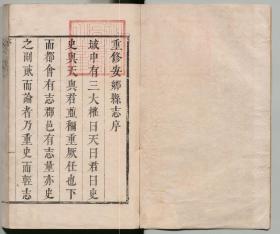 重修安鄉縣志序
域中有三大權曰天曰君曰史
史與天與君並稱重厥任也下
而都會有志郡邑有志並亦史
之副貳而論者乃重史而輕志